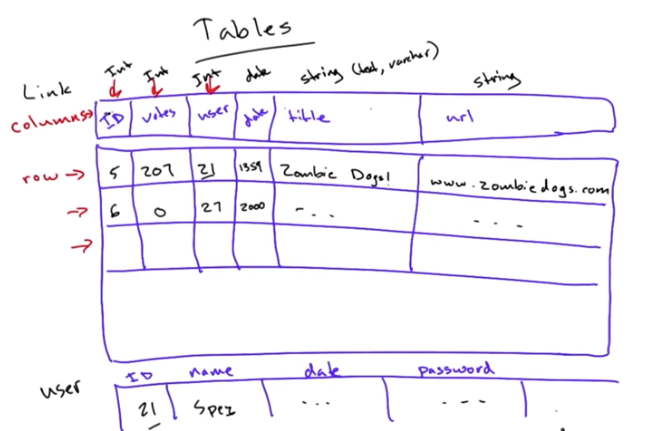 Tables
Link Int Int Int date string (text, varchar) string
columns ID votes user date title url
row 5 207 21 1359 Zombie Dogs! www.zombiedogs.com
6 0 27 2000 -... ...
user ID name date password
21 Spez ... ---